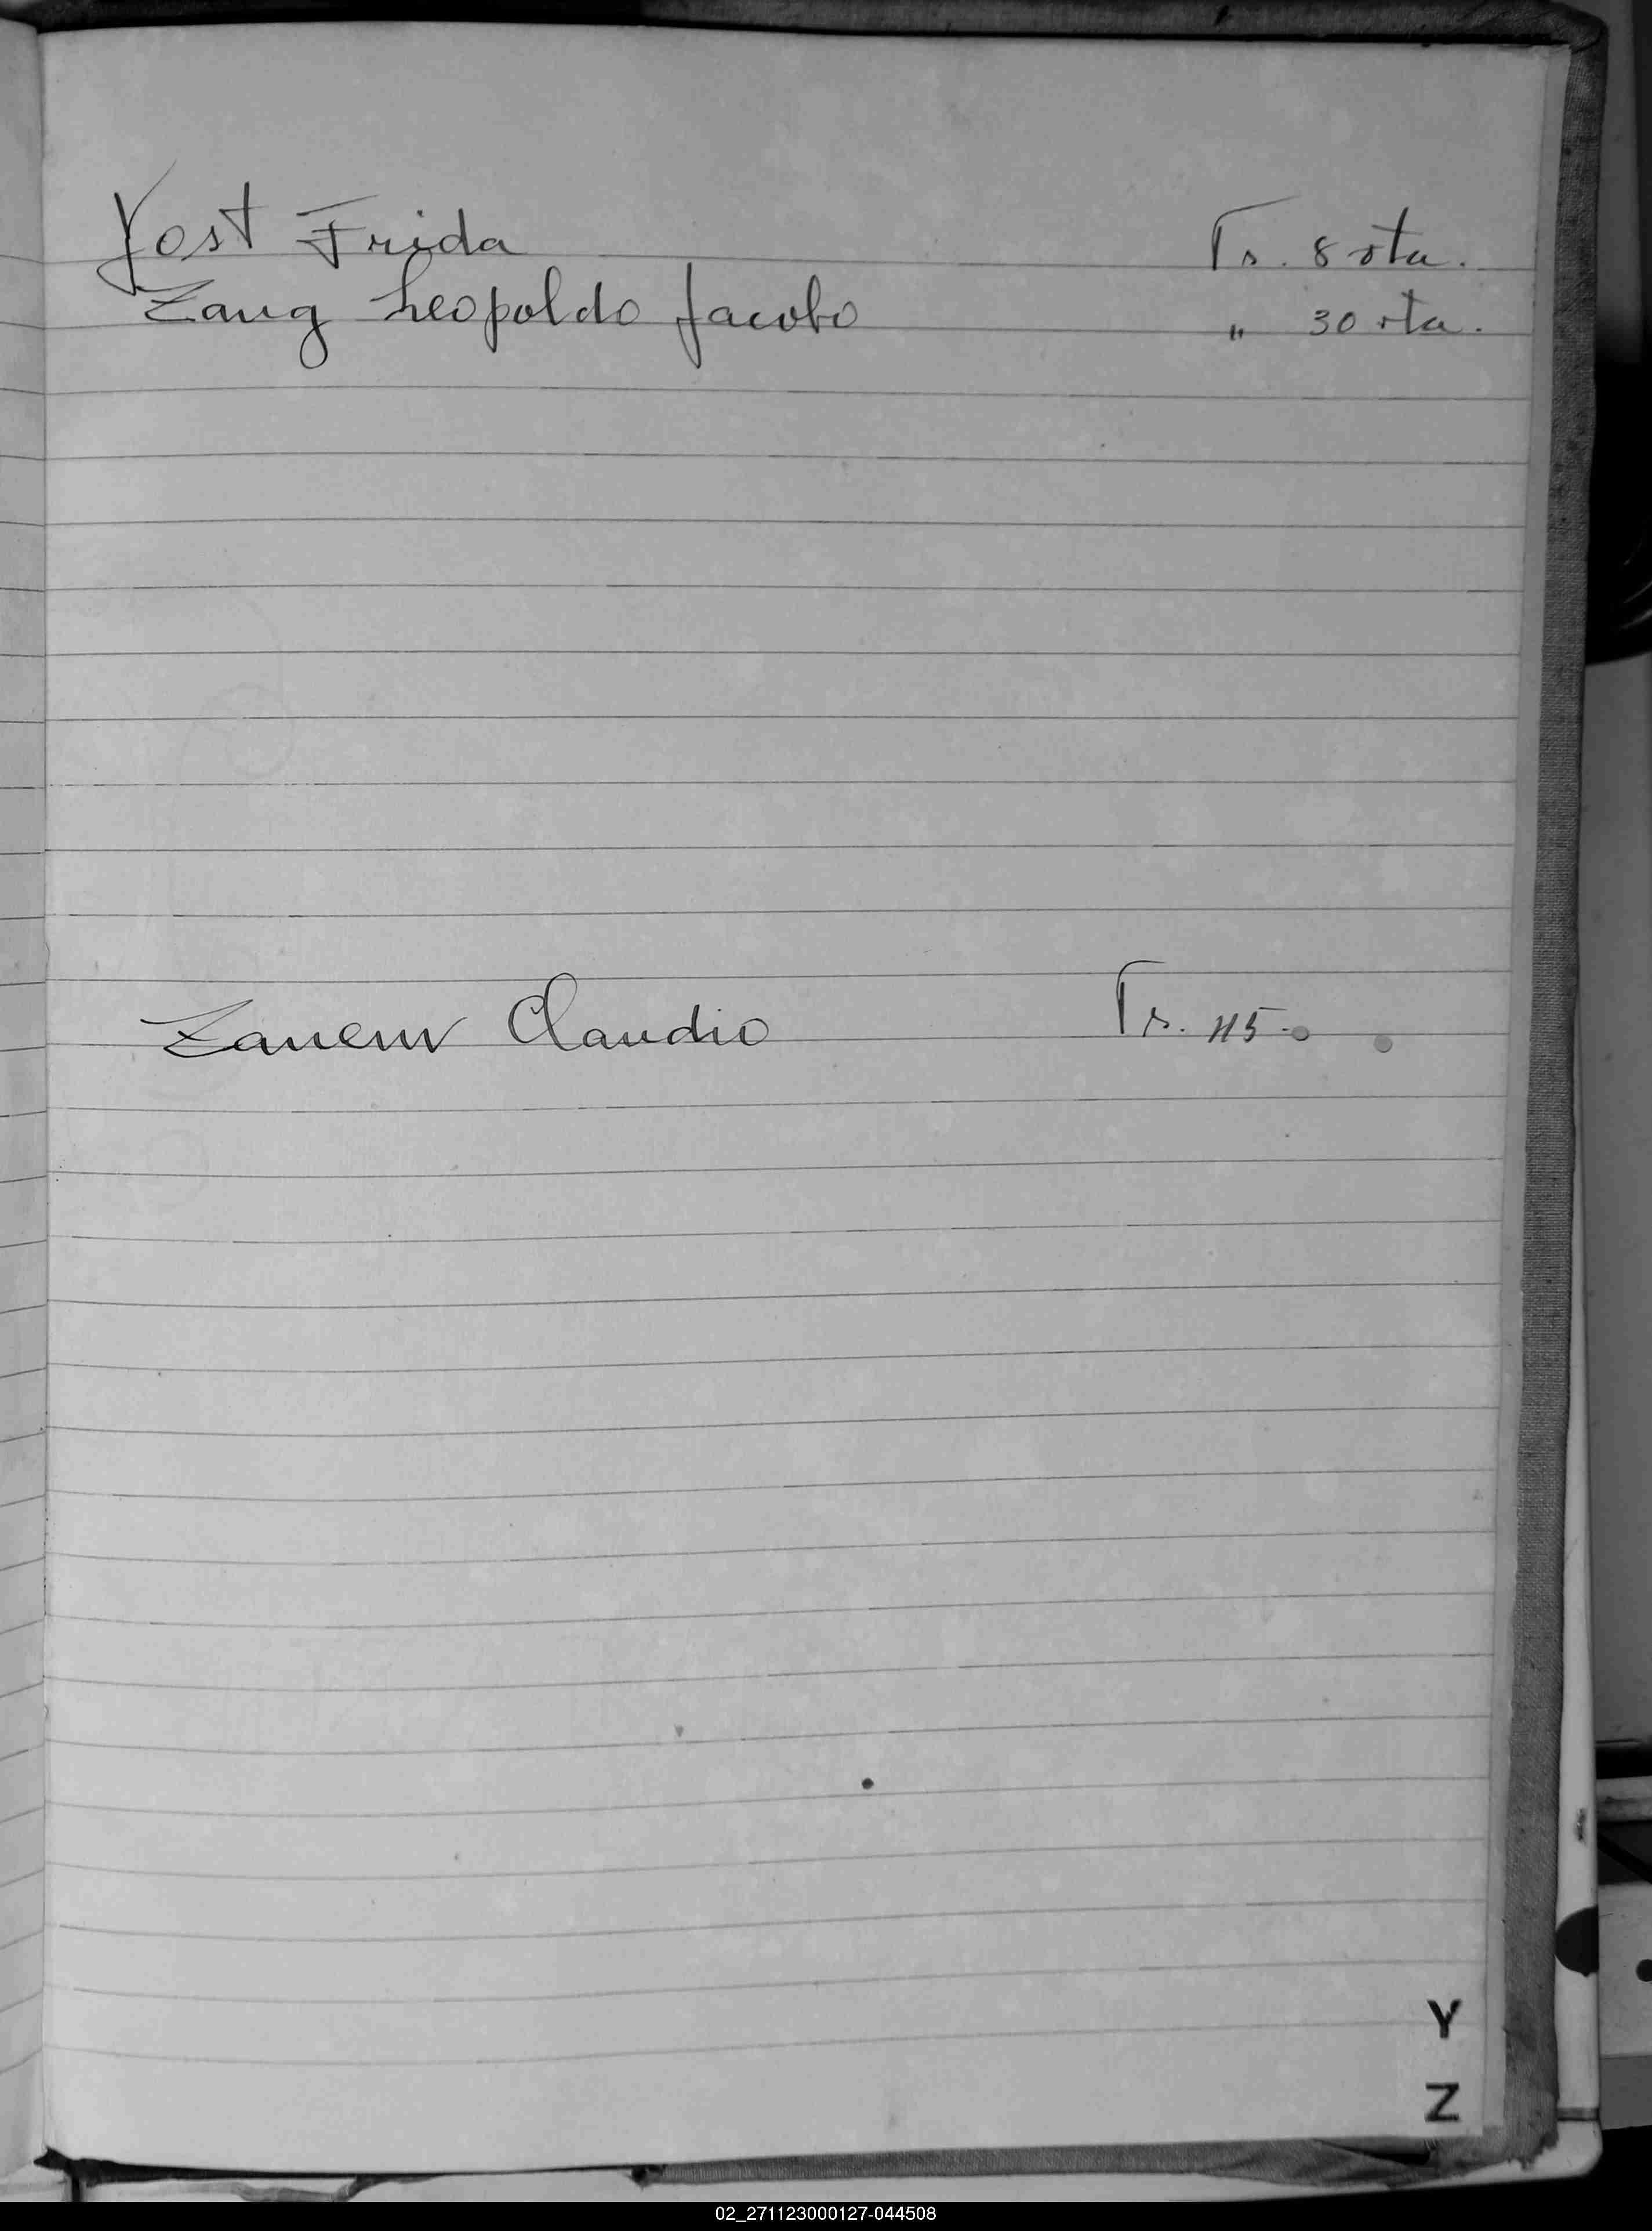 Yost Frida Tr. 8 vta.
Zang Leopoldo Jacobo " 30 vta.
Claudio Tr. 115.
Y
Z
02_271123000127-044508